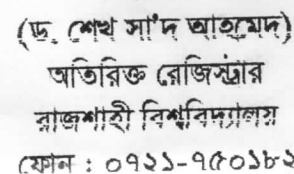 (ড. শেখ সা'দ আহমেদ)
অতিরিক্ত রেজিস্ট্রার
রাজশাহী বিশ্ববিদ্যালয়
ফোন : ০৭২১-৭৫০১৮২